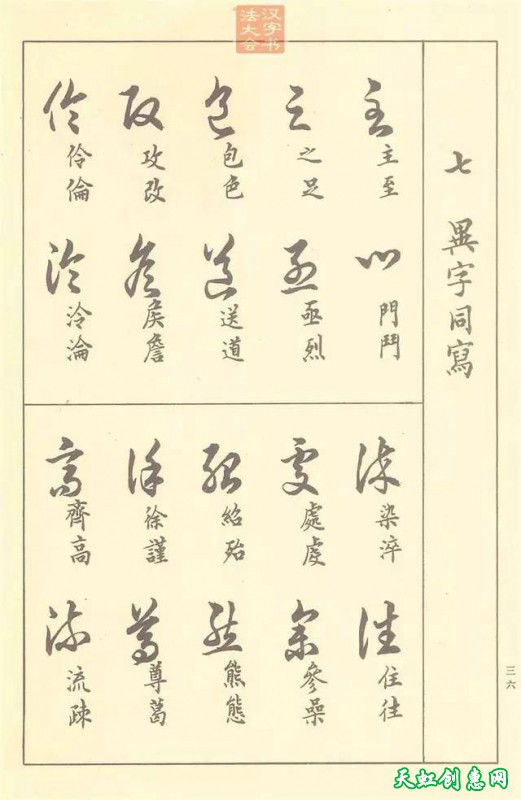 汉字书
法大会
七 異字同寫
主至
門鬥
之足
亟烈
包色
送道
攻改
矦詹
伶倫
泠淪
染淬
住往
處虔
參喿
紹殆
熊態
徐謹
尊葛
齊高
流疎
三六
天虹创惠网